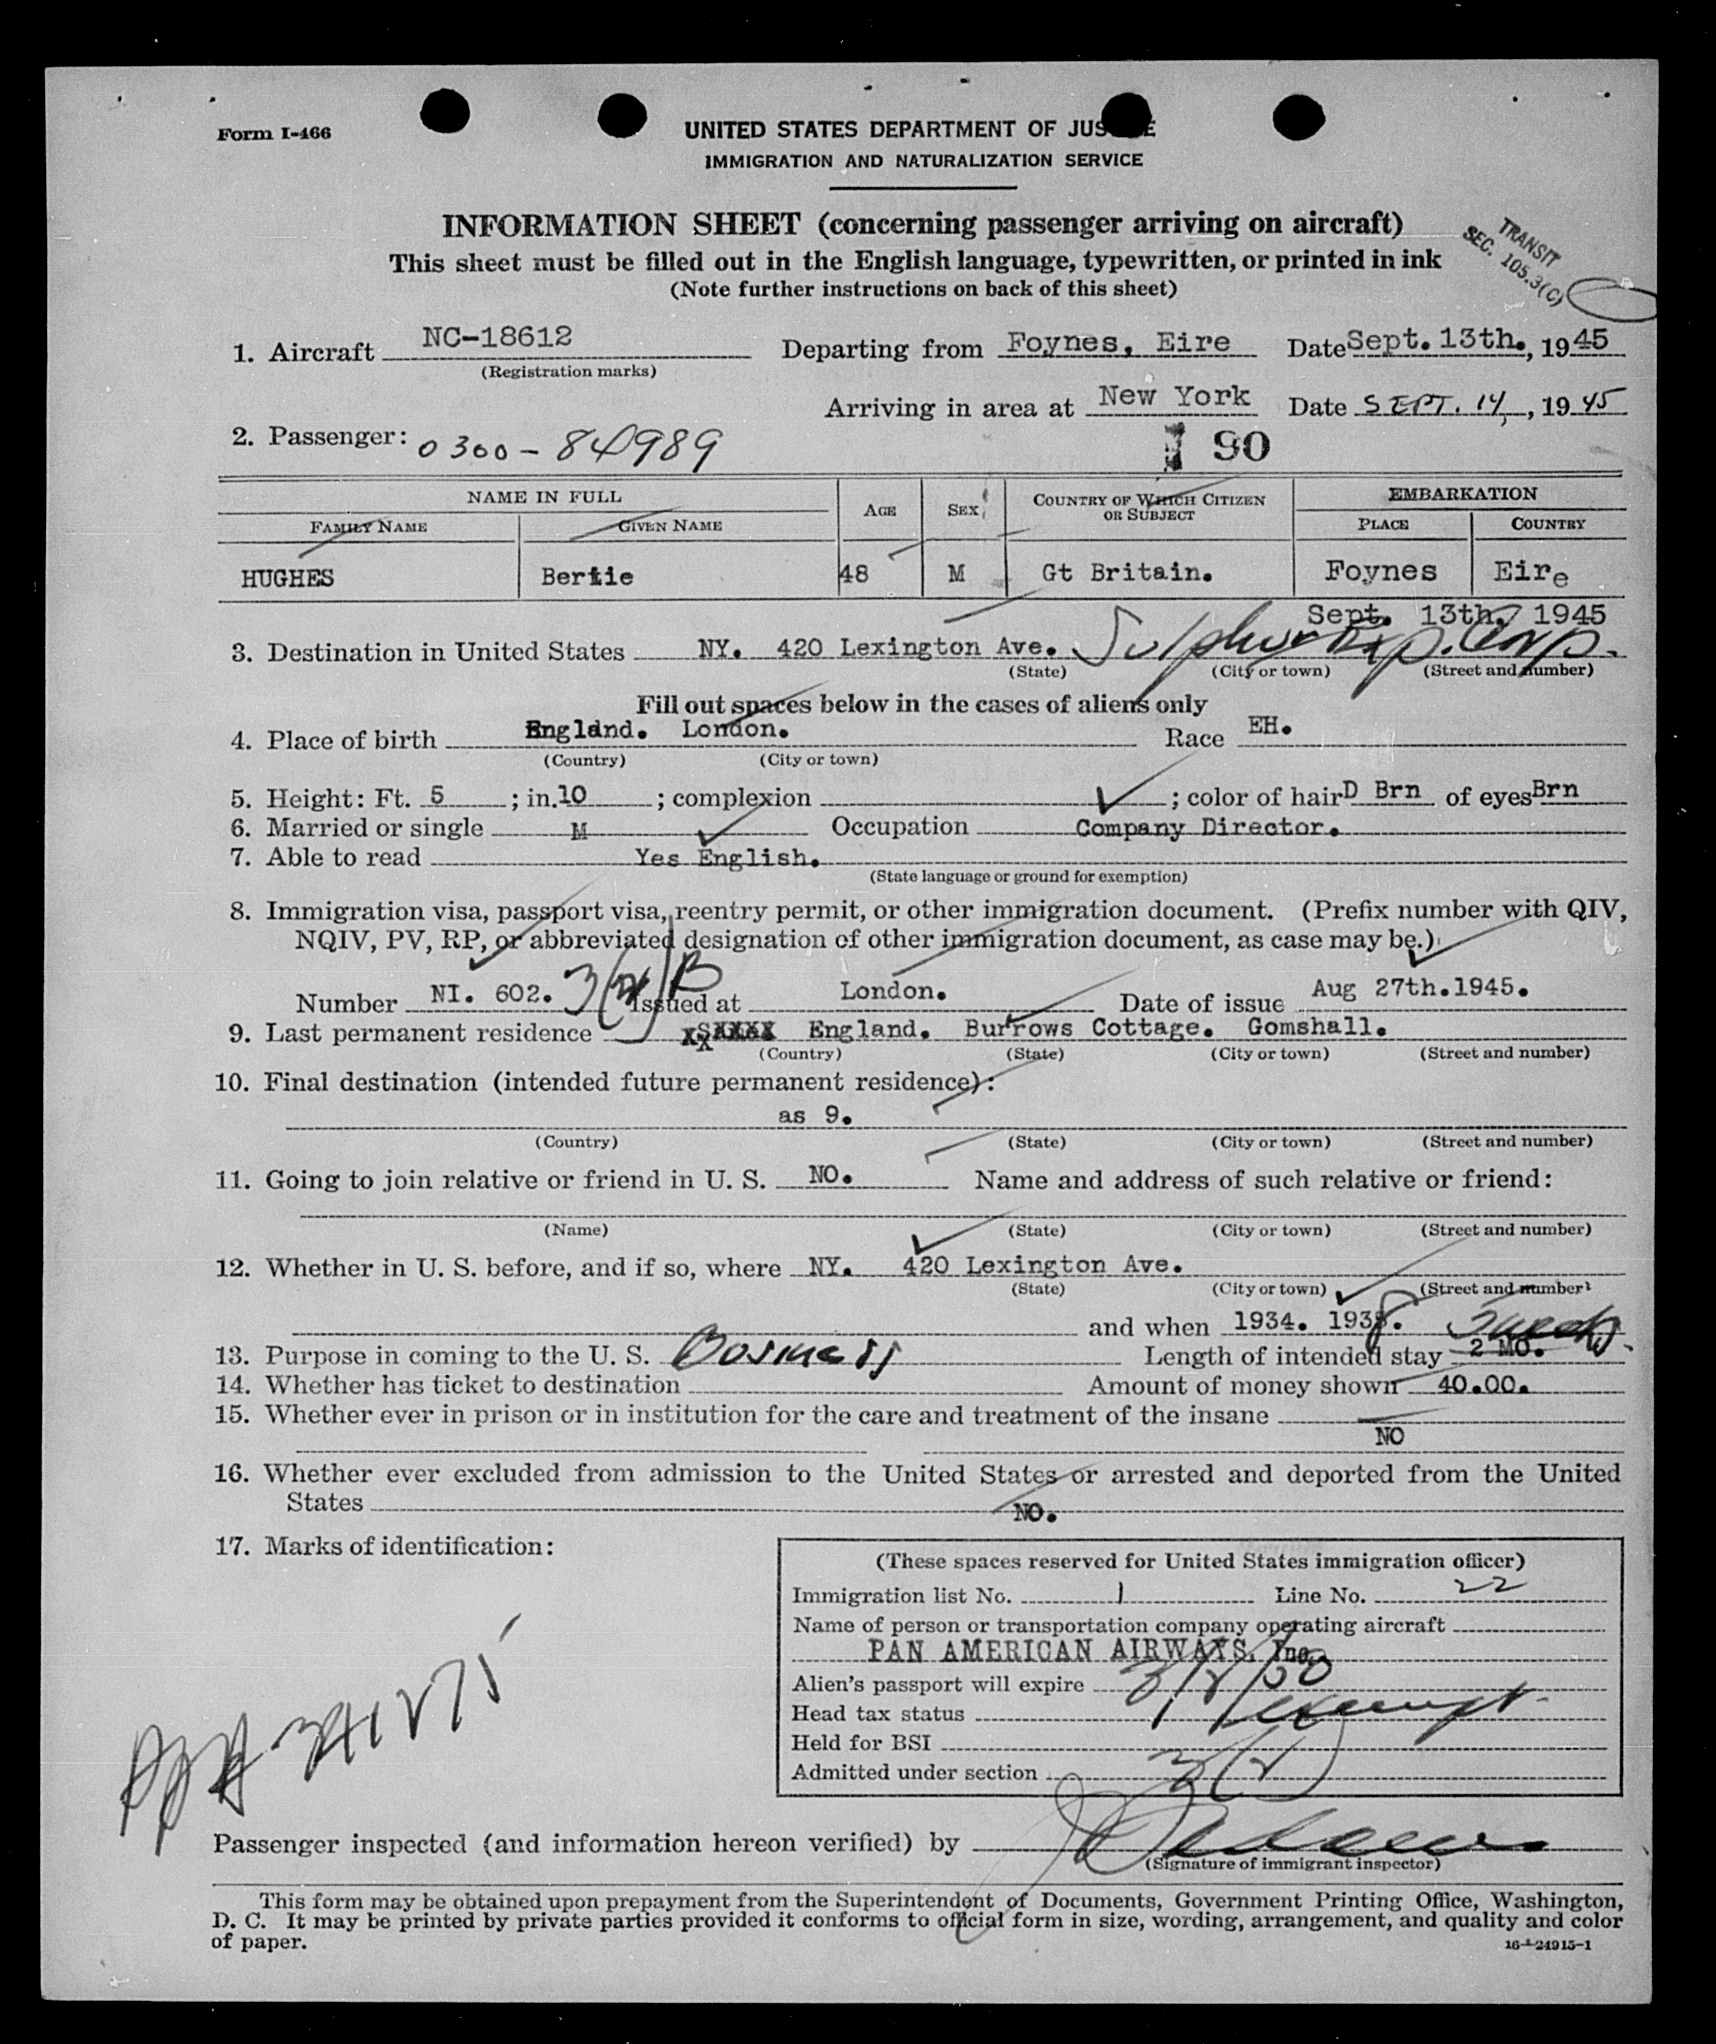 Form I-466
UNITED STATES DEPARTMENT OF JUSTICE
IMMIGRATION AND NATURALIZATION SERVICE
INFORMATION SHEET (concerning passenger arriving on aircraft)
This sheet must be filled out in the English language, typewritten, or printed in ink
(Note further instructions on back of this sheet)
TRANSIT
SEC. 105.3(C)
1. Aircraft NC-18612 Departing from Foynes, Eire Date Sept. 13th., 1945
(Registration marks)
Arriving in area at New York Date SEPT. 14, 1945
2. Passenger: 0300-84989 90
NAME IN FULL AGE SEX COUNTRY OF WHICH CITIZEN OR SUBJECT EMBARKATION
FAMILY NAME GIVEN NAME PLACE COUNTRY
HUGHES Bertie 48 M Gt Britain. Foynes Eire
Sept. 13th. 1945
3. Destination in United States NY. 420 Lexington Ave. Sulphur Exp. Corp.
(State) (City or town) (Street and number)
Fill out spaces below in the cases of aliens only
4. Place of birth England. London. Race EH.
(Country) (City or town)
5. Height: Ft. 5 ; in. 10 ; complexion ; color of hair D Brn of eyes Brn
6. Married or single M Occupation Company Director.
7. Able to read Yes English.
(State language or ground for exemption)
8. Immigration visa, passport visa, reentry permit, or other immigration document. (Prefix number with QIV,
NQIV, PV, RP, or abbreviated designation of other immigration document, as case may be.)
Number NI. 602. 3(2)B Issued at London. Date of issue Aug 27th.1945.
9. Last permanent residence England. Burrows Cottage. Gomshall.
(Country) (State) (City or town) (Street and number)
10. Final destination (intended future permanent residence):
as 9.
(Country) (State) (City or town) (Street and number)
11. Going to join relative or friend in U. S. NO. Name and address of such relative or friend:
(Name) (State) (City or town) (Street and number)
12. Whether in U. S. before, and if so, where NY. 420 Lexington Ave.
(State) (City or town) (Street and number)
and when 1934. 1938. 3 weeks.
13. Purpose in coming to the U. S. Business Length of intended stay 2 MO.
14. Whether has ticket to destination Amount of money shown 40.00.
15. Whether ever in prison or in institution for the care and treatment of the insane
NO
16. Whether ever excluded from admission to the United States or arrested and deported from the United
States NO.
17. Marks of identification:
(These spaces reserved for United States immigration officer)
Immigration list No. 1 Line No. 22
Name of person or transportation company operating aircraft
PAN AMERICAN AIRWAYS, Inc.
Alien's passport will expire 3/8/50
Head tax status exempt
Held for BSI
Admitted under section 3(2)
Passenger inspected (and information hereon verified) by
(Signature of immigrant inspector)
This form may be obtained upon prepayment from the Superintendent of Documents, Government Printing Office, Washington,
D. C. It may be printed by private parties provided it conforms to official form in size, wording, arrangement, and quality and color
of paper.
16-24915-1